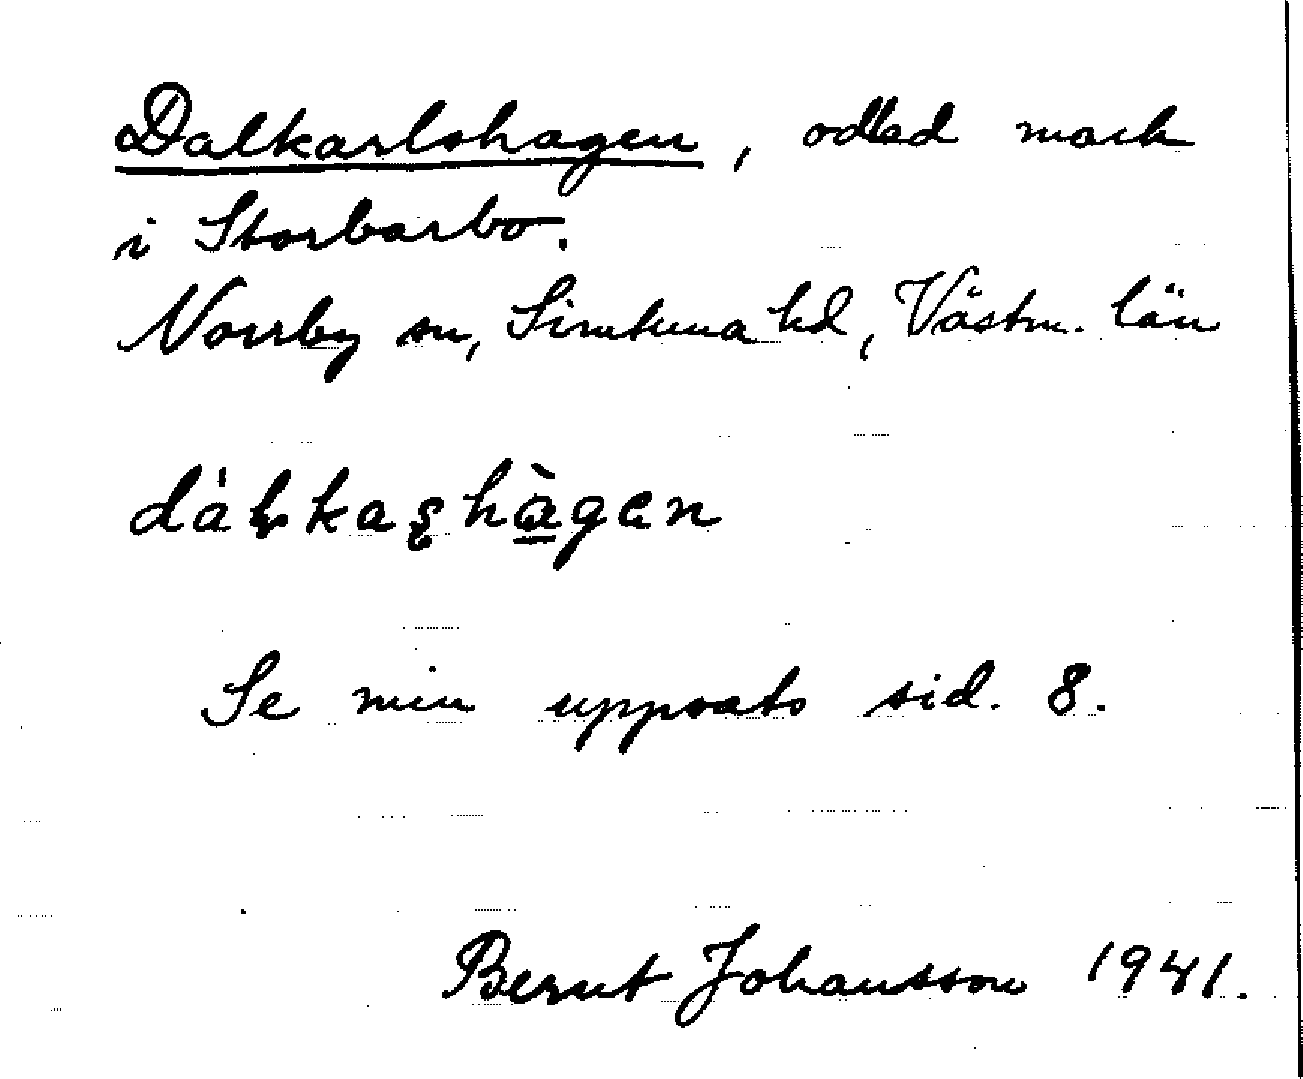 Dalkarlshagen, odlad mark
i Storbarbo.
Norrby sn, Simtuna hd, Västm. län
Se min uppsats sid. 8.
Bernt Johansson 1941.